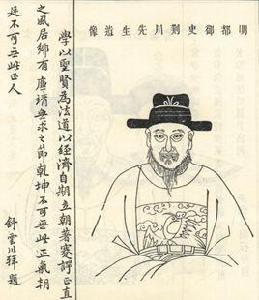 明都御史荆川先生遺像
學以聖賢為法道以經濟自期立朝著謇諤正直
之風居鄉有廉靖無求之節乾坤不可無此正氣朝
廷不可無此正人
舒雲川拜題